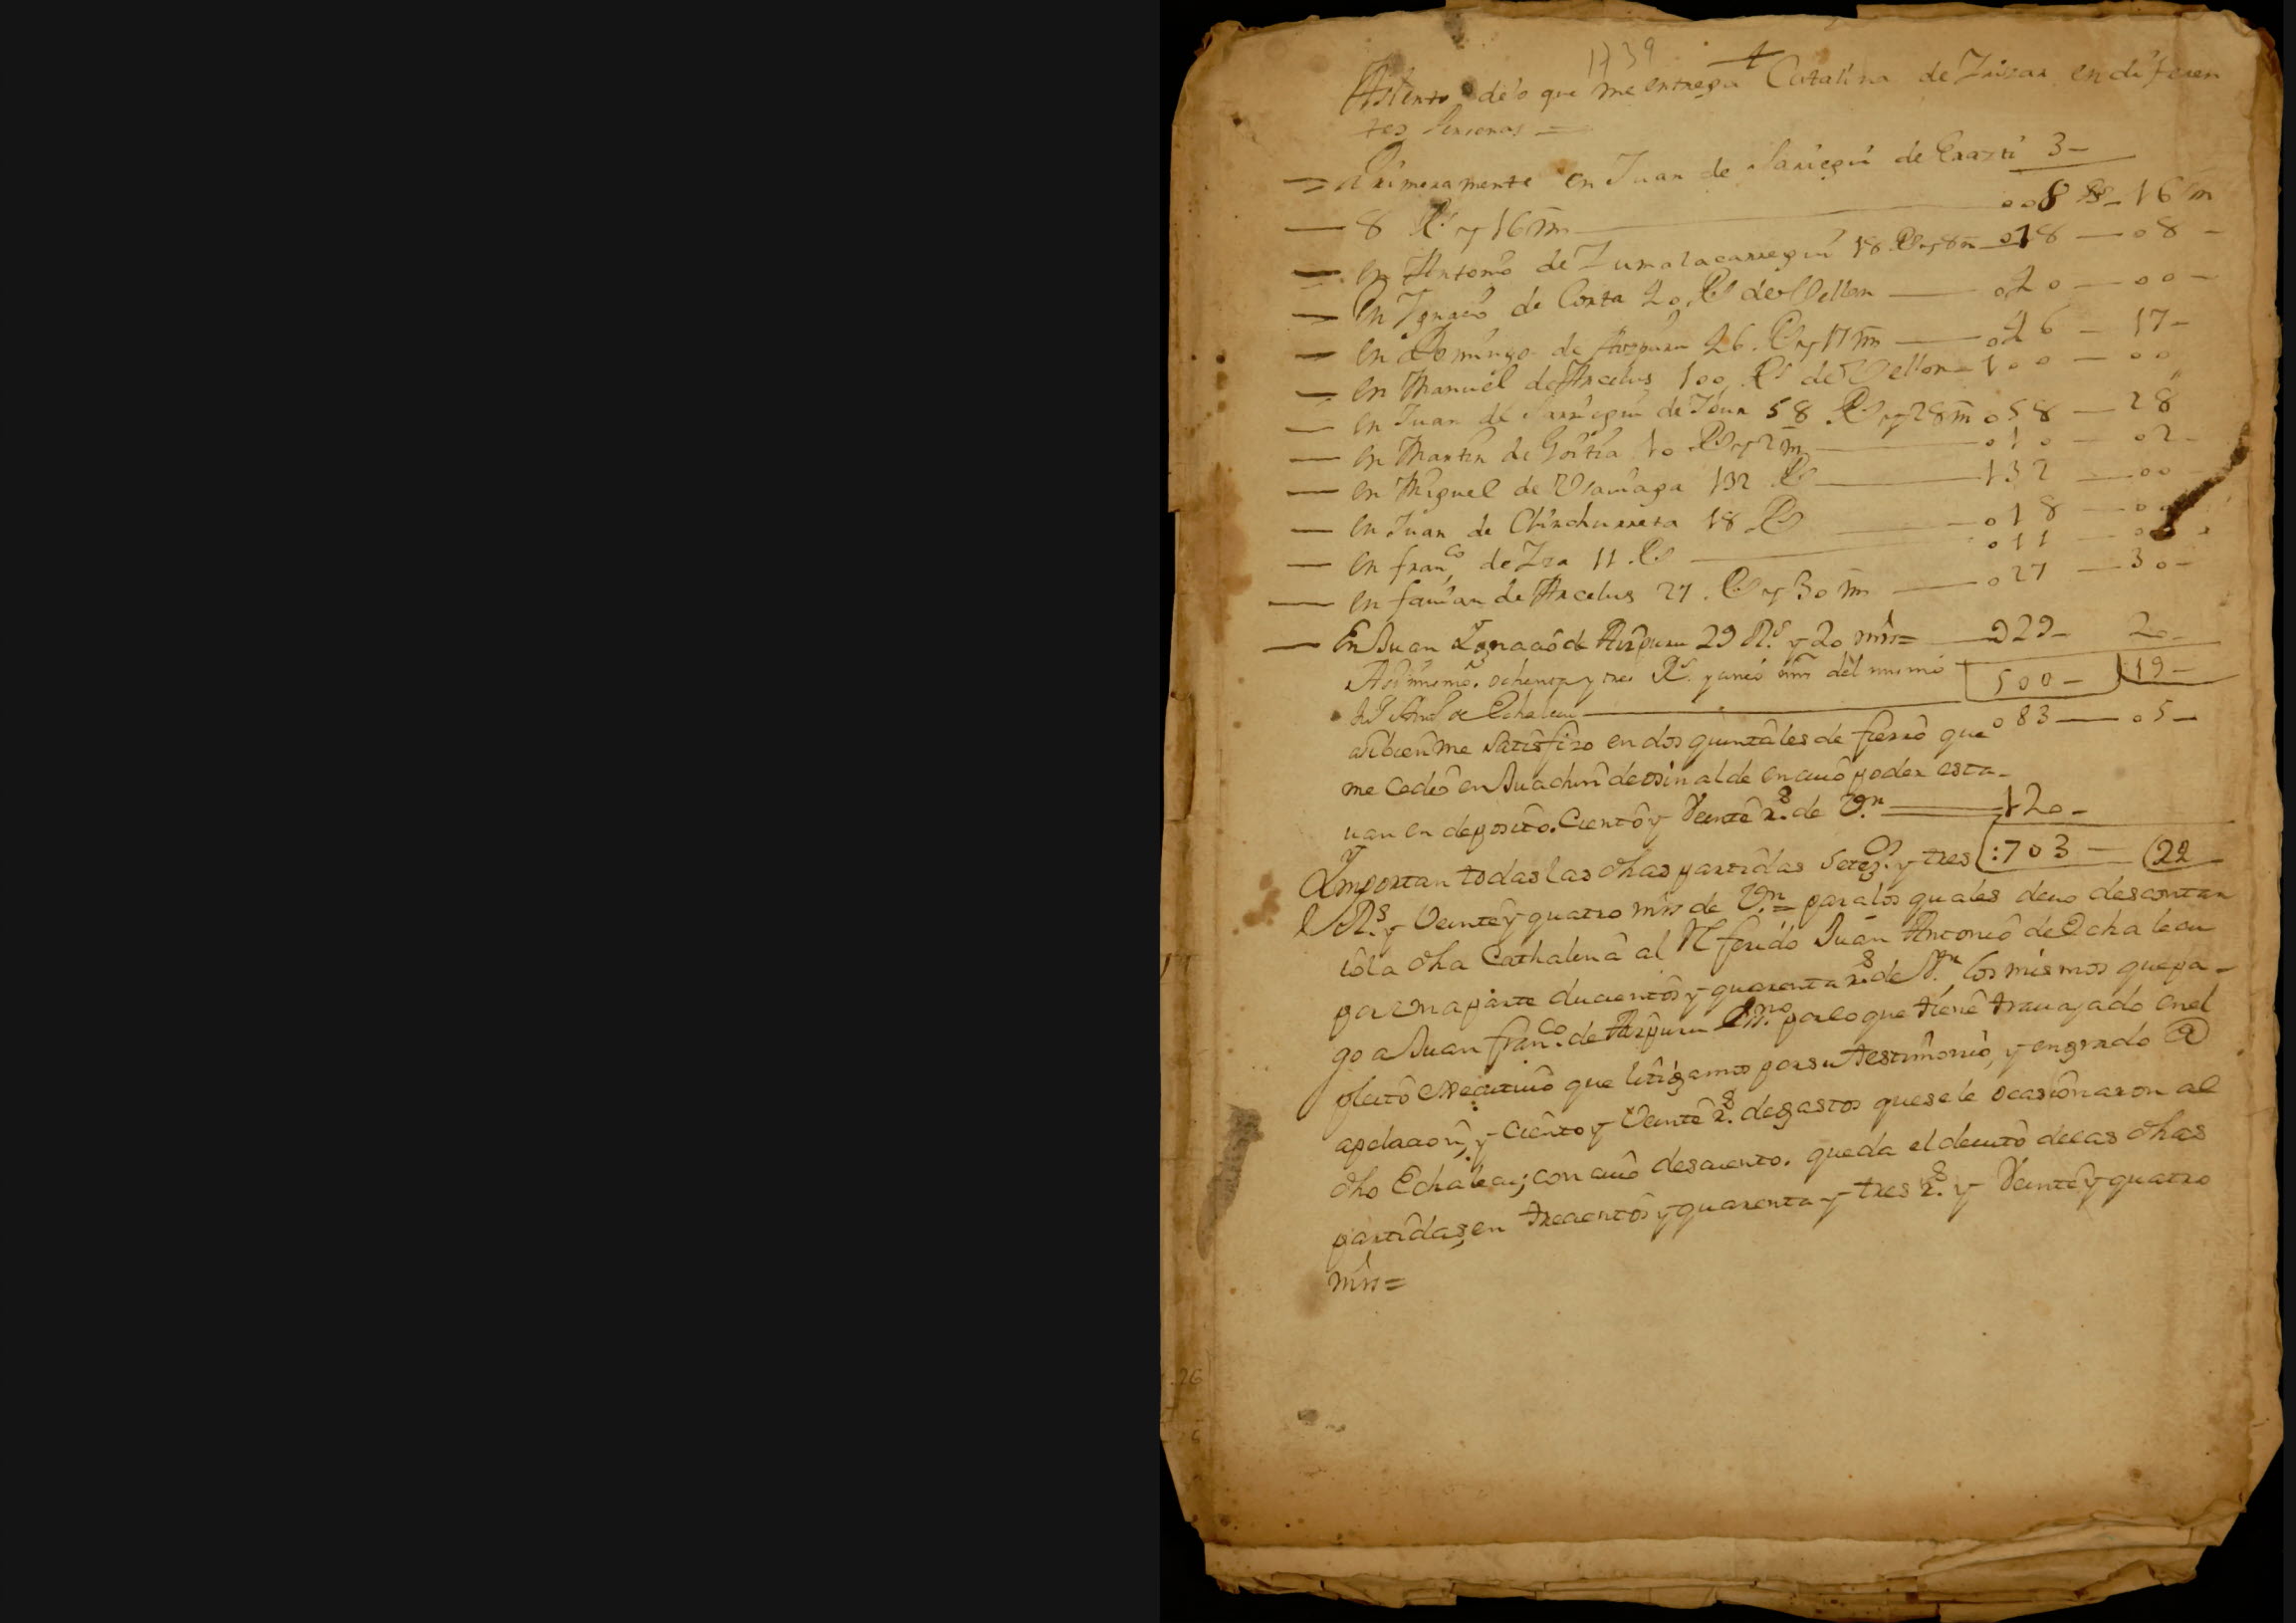 1739
Asiento de lo que me entrega Catalina de Irizar en diferen
tes Personas =
= Primeramente en Juan de Sariegui de Erazti 3 -
— 8 Rs y 16 m — 008 Rs - 16 m
— En Antonio de Zumalacarregui 18 Rs y 8 m — 018 — 08 -
— En Ignacio de Corta 20 Rs de Vellon — 020 — 00 -
— En Domingo de Aizpuru 26 Rs y 17 m — 026 — 17 -
— En Manuel de Arcelus 100 Rs de Vellon — 100 — 00
— En Juan de Sarriegui de 58 Rs y 28 m 058 — 28
— En Martin de Goitia 10 Rs y 2 m — 010 — 02 -
— En Miguel de Vsarraga 132 Rs — 132 — 00 -
— En Juan de Chinchurreta 18 Rs — 018 — 00
— En franco de Iza 11 Rs — 011 —
— En de Arcelus 27 Rs y 30 m — 027 — 30 -
— En Juan Ignacio de Aizpuru 29 Rs y 20 mrs = — 029 - 20 -
Assimismo ochenta y tres Rs y cinco mrs del mismo 500 - 19 -
de Echalecu — 083 — 05 -
asibien me satisfizo en dos quintales de fierro que
me cedio en Juachin de osinalde en cuio poder esta-
uan en deposito. Ciento y Veinte rs de Vn — 120 -
Importan todas las dhas partidas setezos y tres :703 — 22
Rs y Veinte y quatro mrs de Vn = para los quales deuo descontar
io la dha Cathalina al Referido Juan Antonio de Echalecu
por una parte ducientos y quarenta rs de Vn, los mismos que pa-
go a Juan franco de Aizpuru Essno por lo que tiene trauajado en el
pleito executiuo que litigamos por su testimonio, y en grado de
apelacion, y ciento y Veinte rs de gastos que se le ocasionaron al
dho Echalecu; con cuio descuento. queda el deuito de las dhas
partidas, en trecientos y quarenta y tres rs y Veinte y quatro
mrs =
26
6